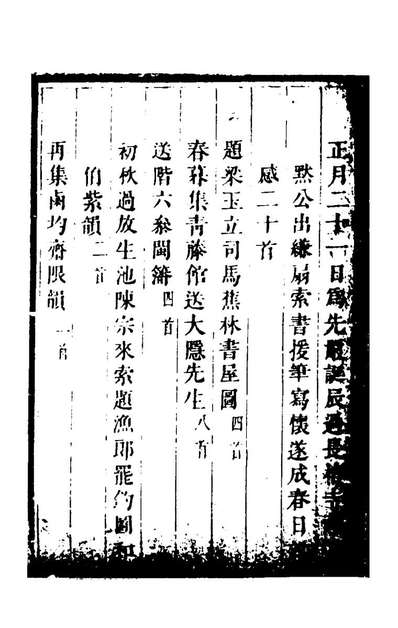 正月二十一日為先誕辰過長
默公出縑扇索書援筆寫懷遂成春日
感二十首
題梁玉立司馬蕉林書屋圖四首
春暮集青藤館送大隱先生八首
送階六叅閩籓四首
初秋過放生池陳宗來索題漁郎罷釣圖和
伯紫韻二首
再集南均齋限韻二首